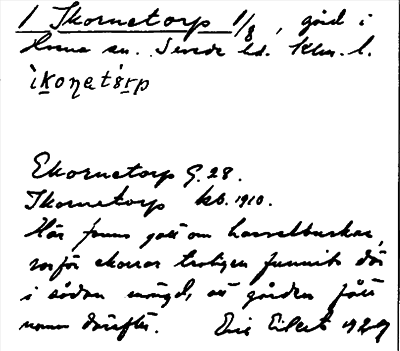 1 Ikornetorp 1/8, gård i
sn. Sevede hd. Klm. l.
ìkoṇetòrp
Ekornetorp G. 28.
Ikornetorp kb. 1910.
Här fanns gott om hasselbuskar,
varför ekorrar troligen funnits där
i sådan mängd, att gården fått
namn därefter. Eric Eilert 1929